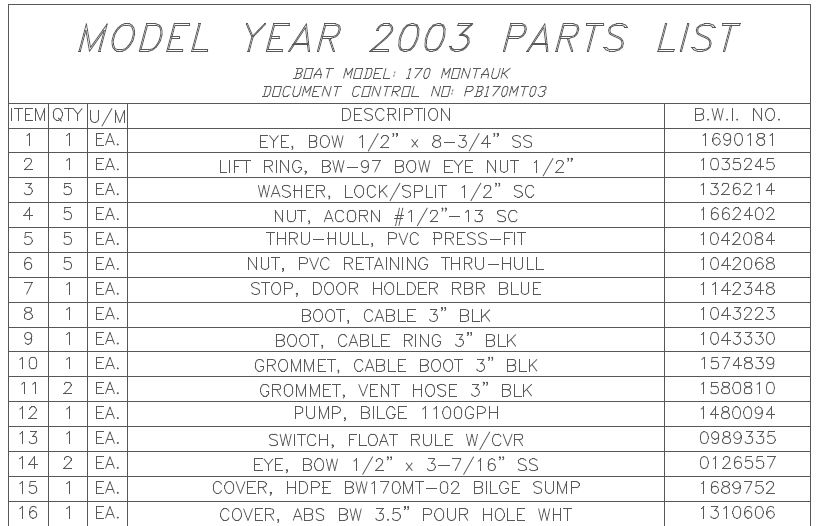 MODEL YEAR 2003 PARTS LIST
BOAT MODEL: 170 MONTAUK
DOCUMENT CONTROL NO: PB170MT03
ITEM QTY U/M DESCRIPTION B.W.I. NO.
1 1 EA. EYE, BOW 1/2" x 8-3/4" SS 1690181
2 1 EA. LIFT RING, BW-97 BOW EYE NUT 1/2" 1035245
3 5 EA. WASHER, LOCK/SPLIT 1/2" SC 1326214
4 5 EA. NUT, ACORN #1/2"-13 SC 1662402
5 5 EA. THRU-HULL, PVC PRESS-FIT 1042084
6 5 EA. NUT, PVC RETAINING THRU-HULL 1042068
7 1 EA. STOP, DOOR HOLDER RBR BLUE 1142348
8 1 EA. BOOT, CABLE 3" BLK 1043223
9 1 EA. BOOT, CABLE RING 3" BLK 1043330
10 1 EA. GROMMET, CABLE BOOT 3" BLK 1574839
11 2 EA. GROMMET, VENT HOSE 3" BLK 1580810
12 1 EA. PUMP, BILGE 1100GPH 1480094
13 1 EA. SWITCH, FLOAT RULE W/CVR 0989335
14 2 EA. EYE, BOW 1/2" x 3-7/16" SS 0126557
15 1 EA. COVER, HDPE BW170MT-02 BILGE SUMP 1689752
16 1 EA. COVER, ABS BW 3.5" POUR HOLE WHT 1310606